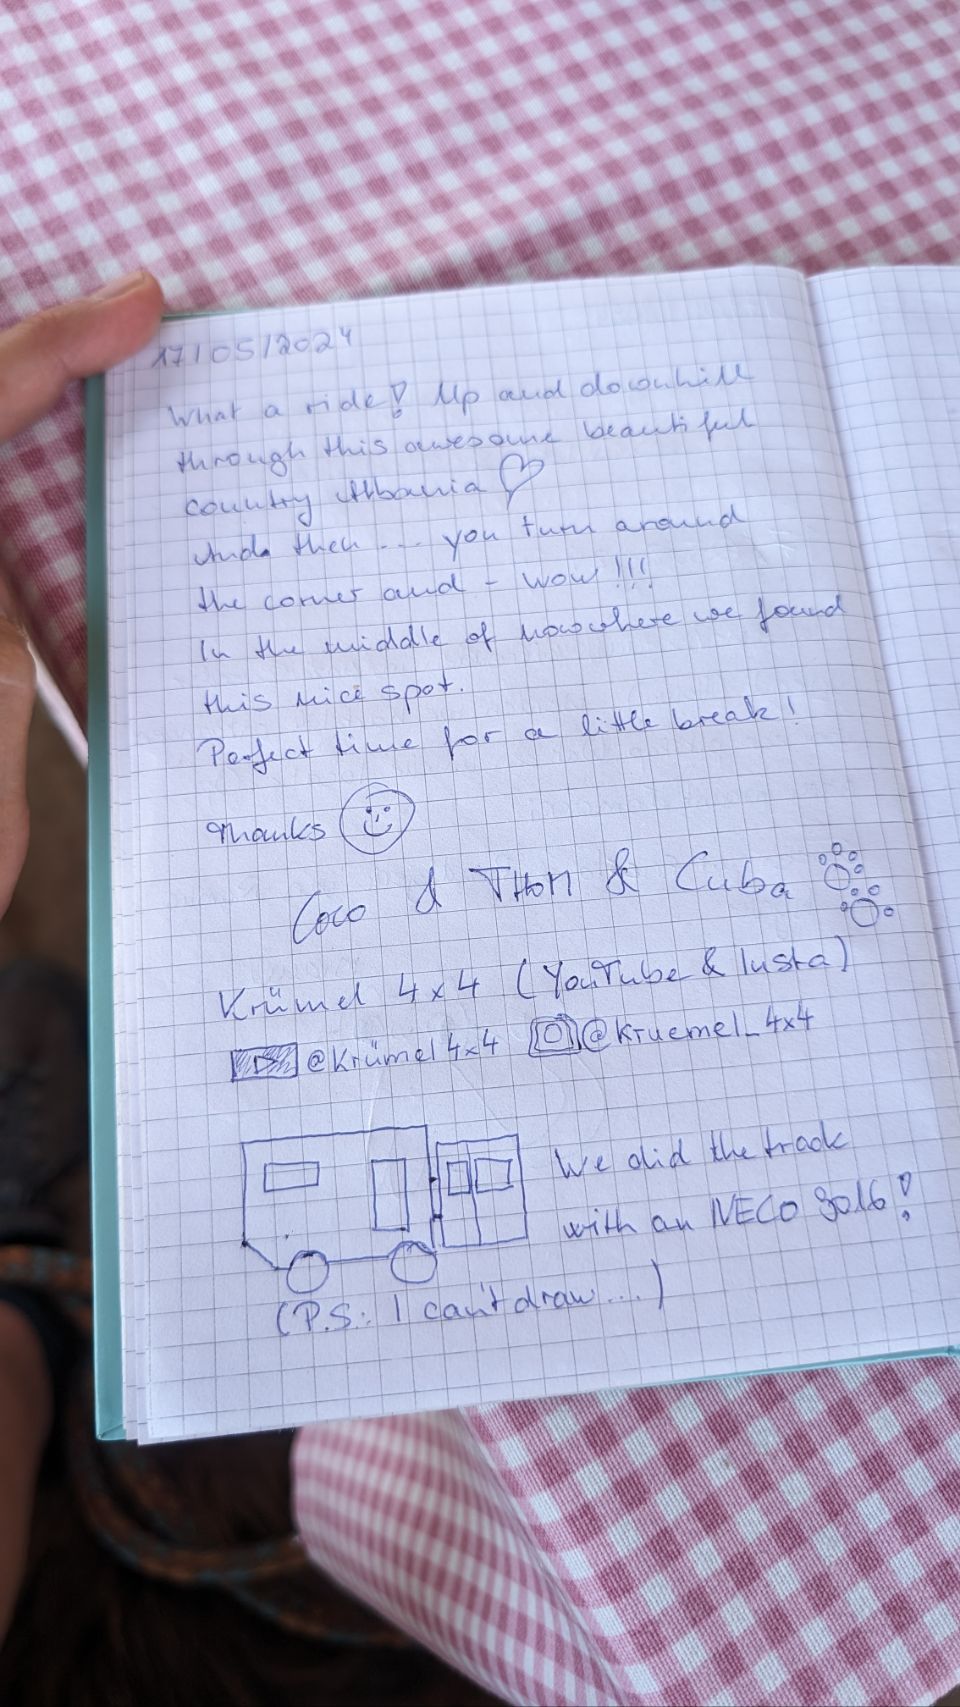 17/05/2024
What a ride! Up and downhill
through this awesome beautiful
country Albania ♡
And then ... you turn around
the corner and - wow!!!
In the middle of nowwhere we found
this nice spot.
Perfect time for a little break!
Thanks
Coco & THOn & Cuba
Krümel 4x4 (YouTube & Insta)
@Krümel4x4 @kruemel_4x4
We did the track
with an IVECO 9016!
(P.S.: I can't draw...)